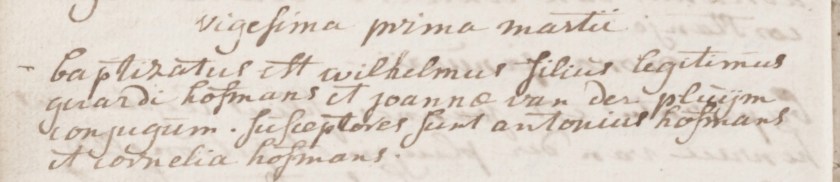 vigesima prima martii
- baptizatus est wilhelmus filius legitimus
gerardi hofmans et joannæ van der pluijm
conjugum. susceptores sunt antonius hofmans
et cornelia hofmans.